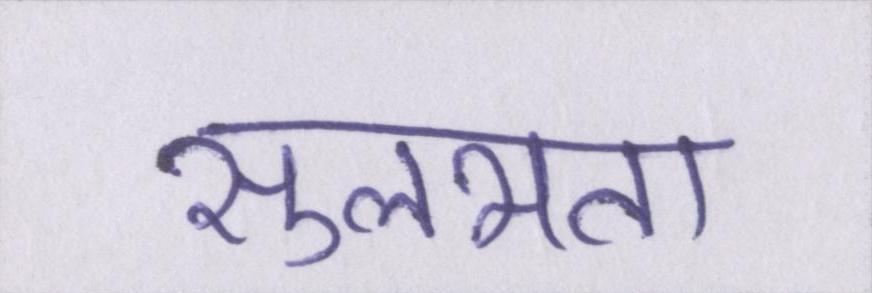 सुलभता